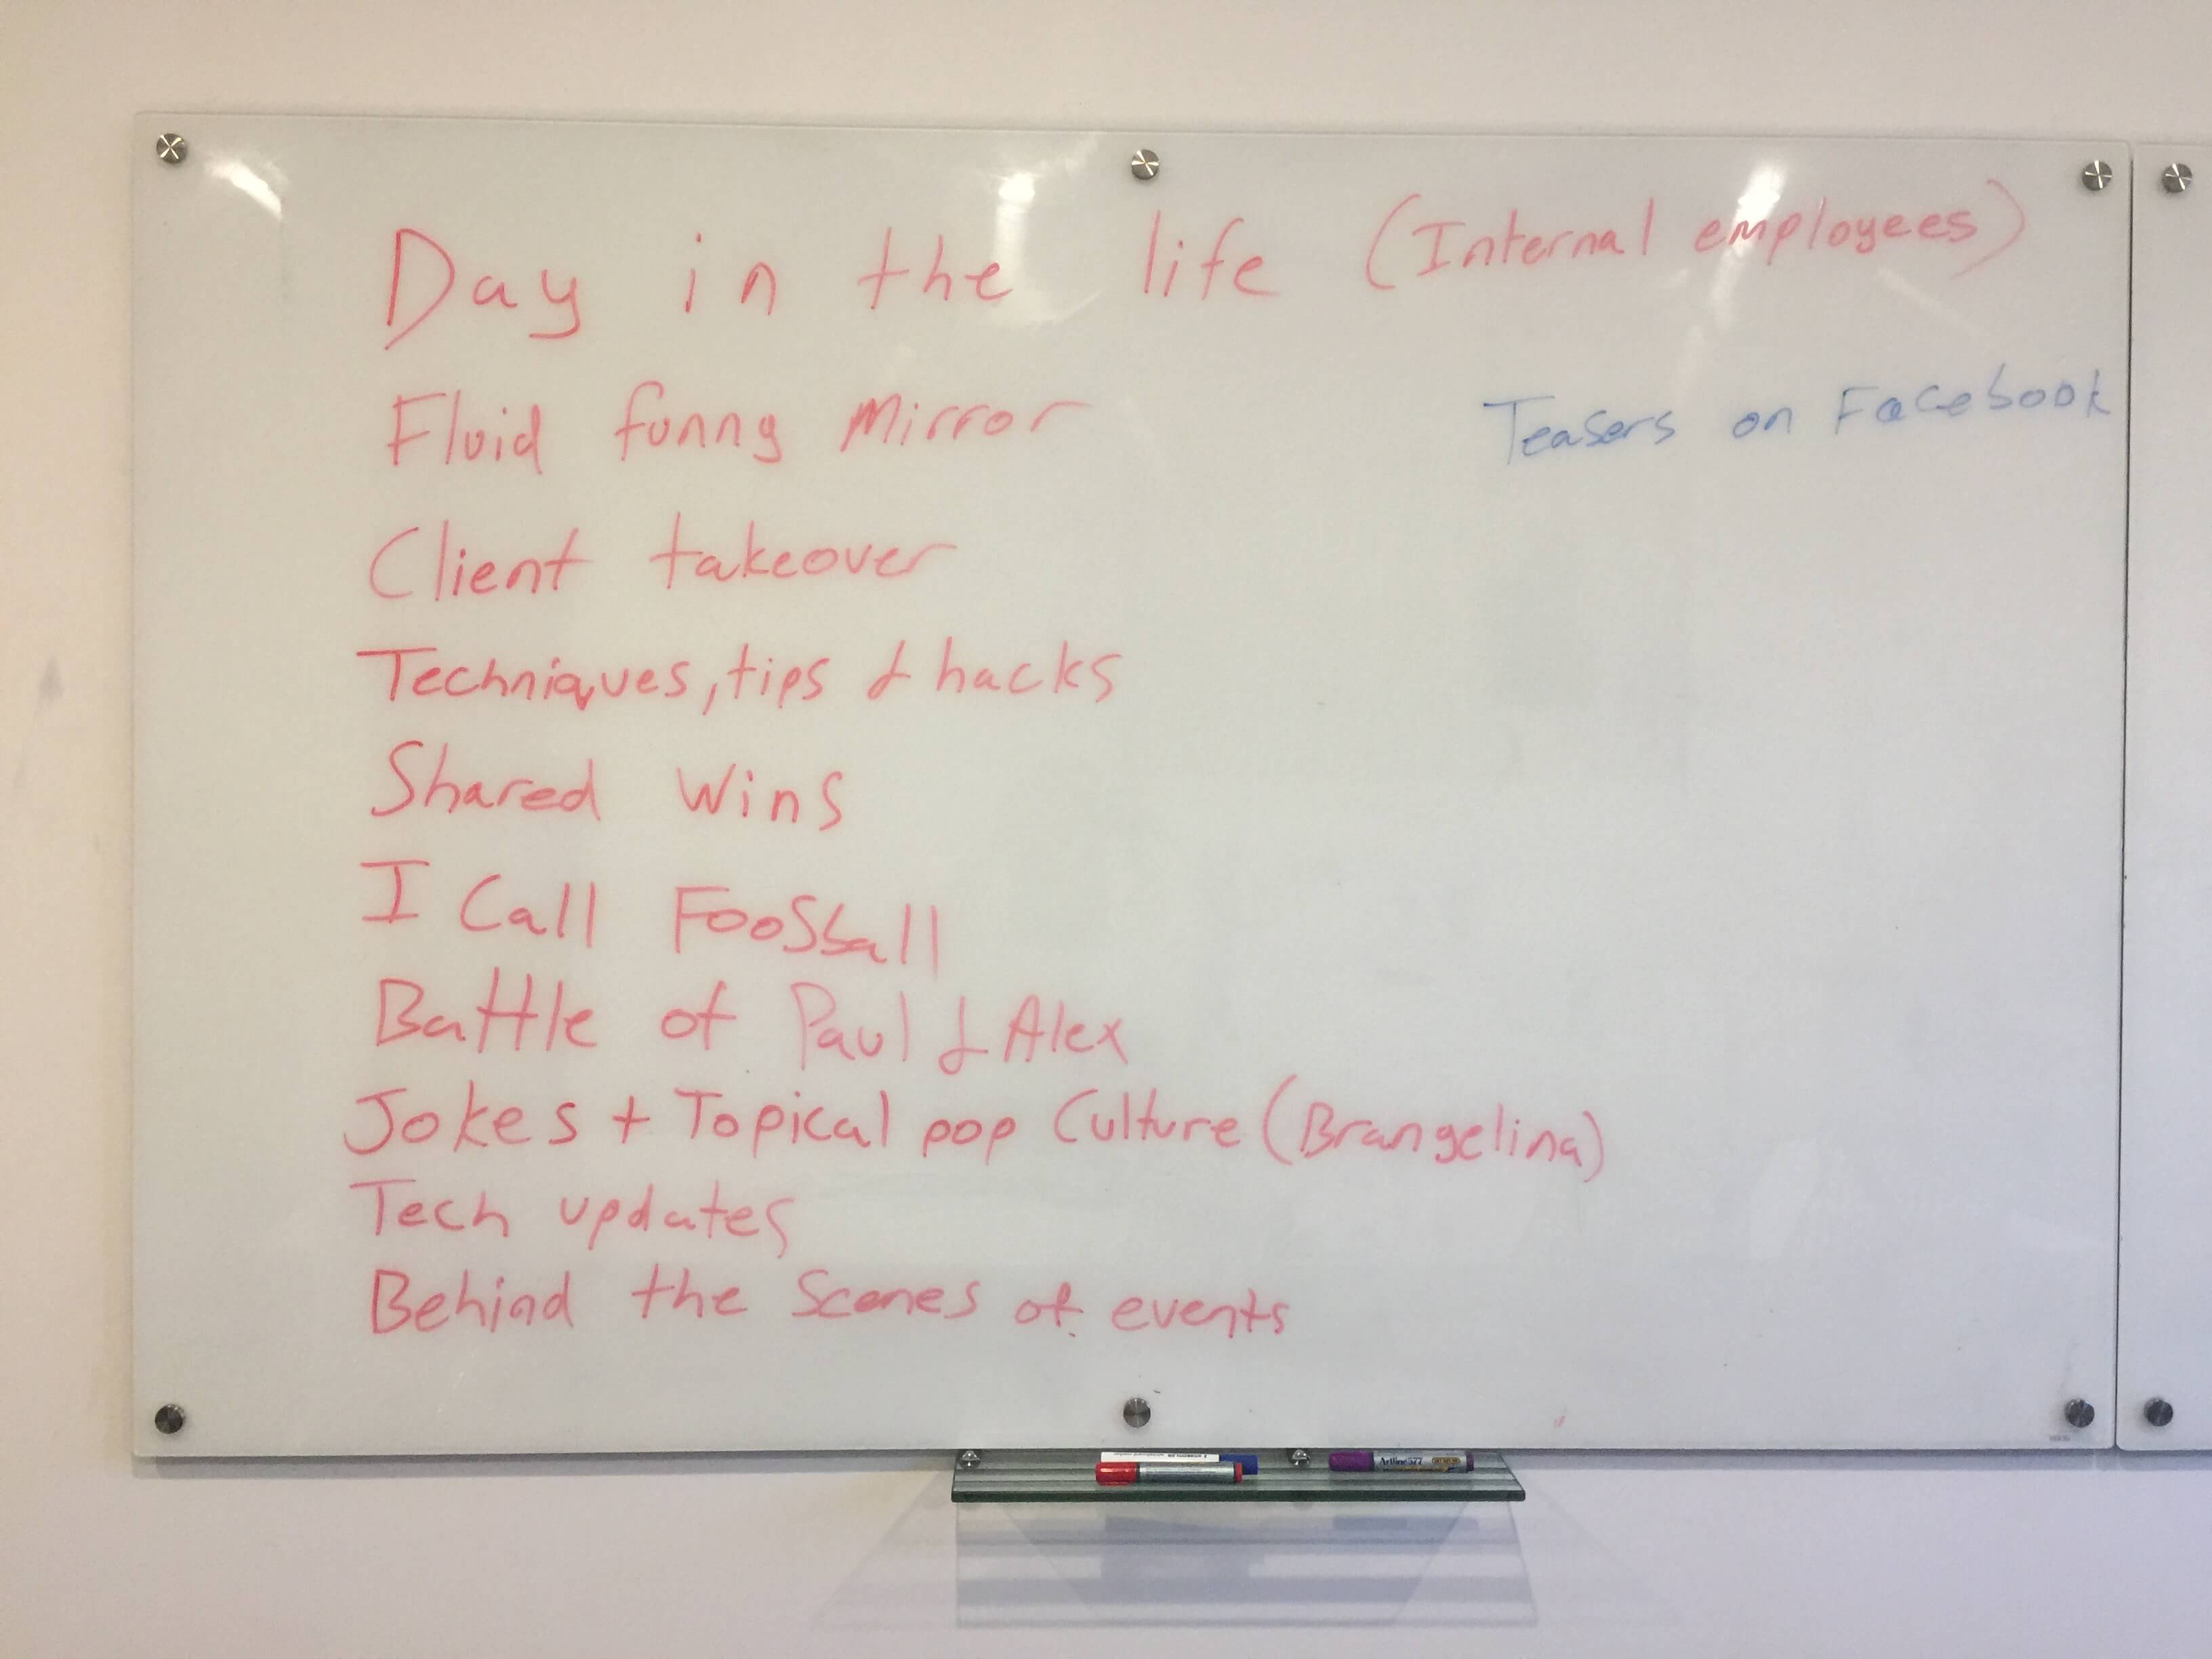 Day in the life (Internal employees)
Fluid funny Mirror
Teasers on Facebook
Client takeover
Techniques, tips & hacks
Shared Wins
I Call FooSball
Battle of Paul & Alex
Jokes + Topical pop Culture (Brangelina)
Tech updates
Behind the Scenes of events
Artline 577